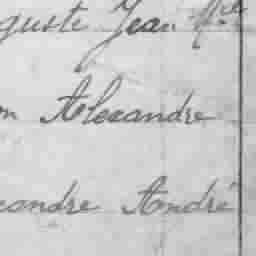 guste Jean
Alexandre
xandre André